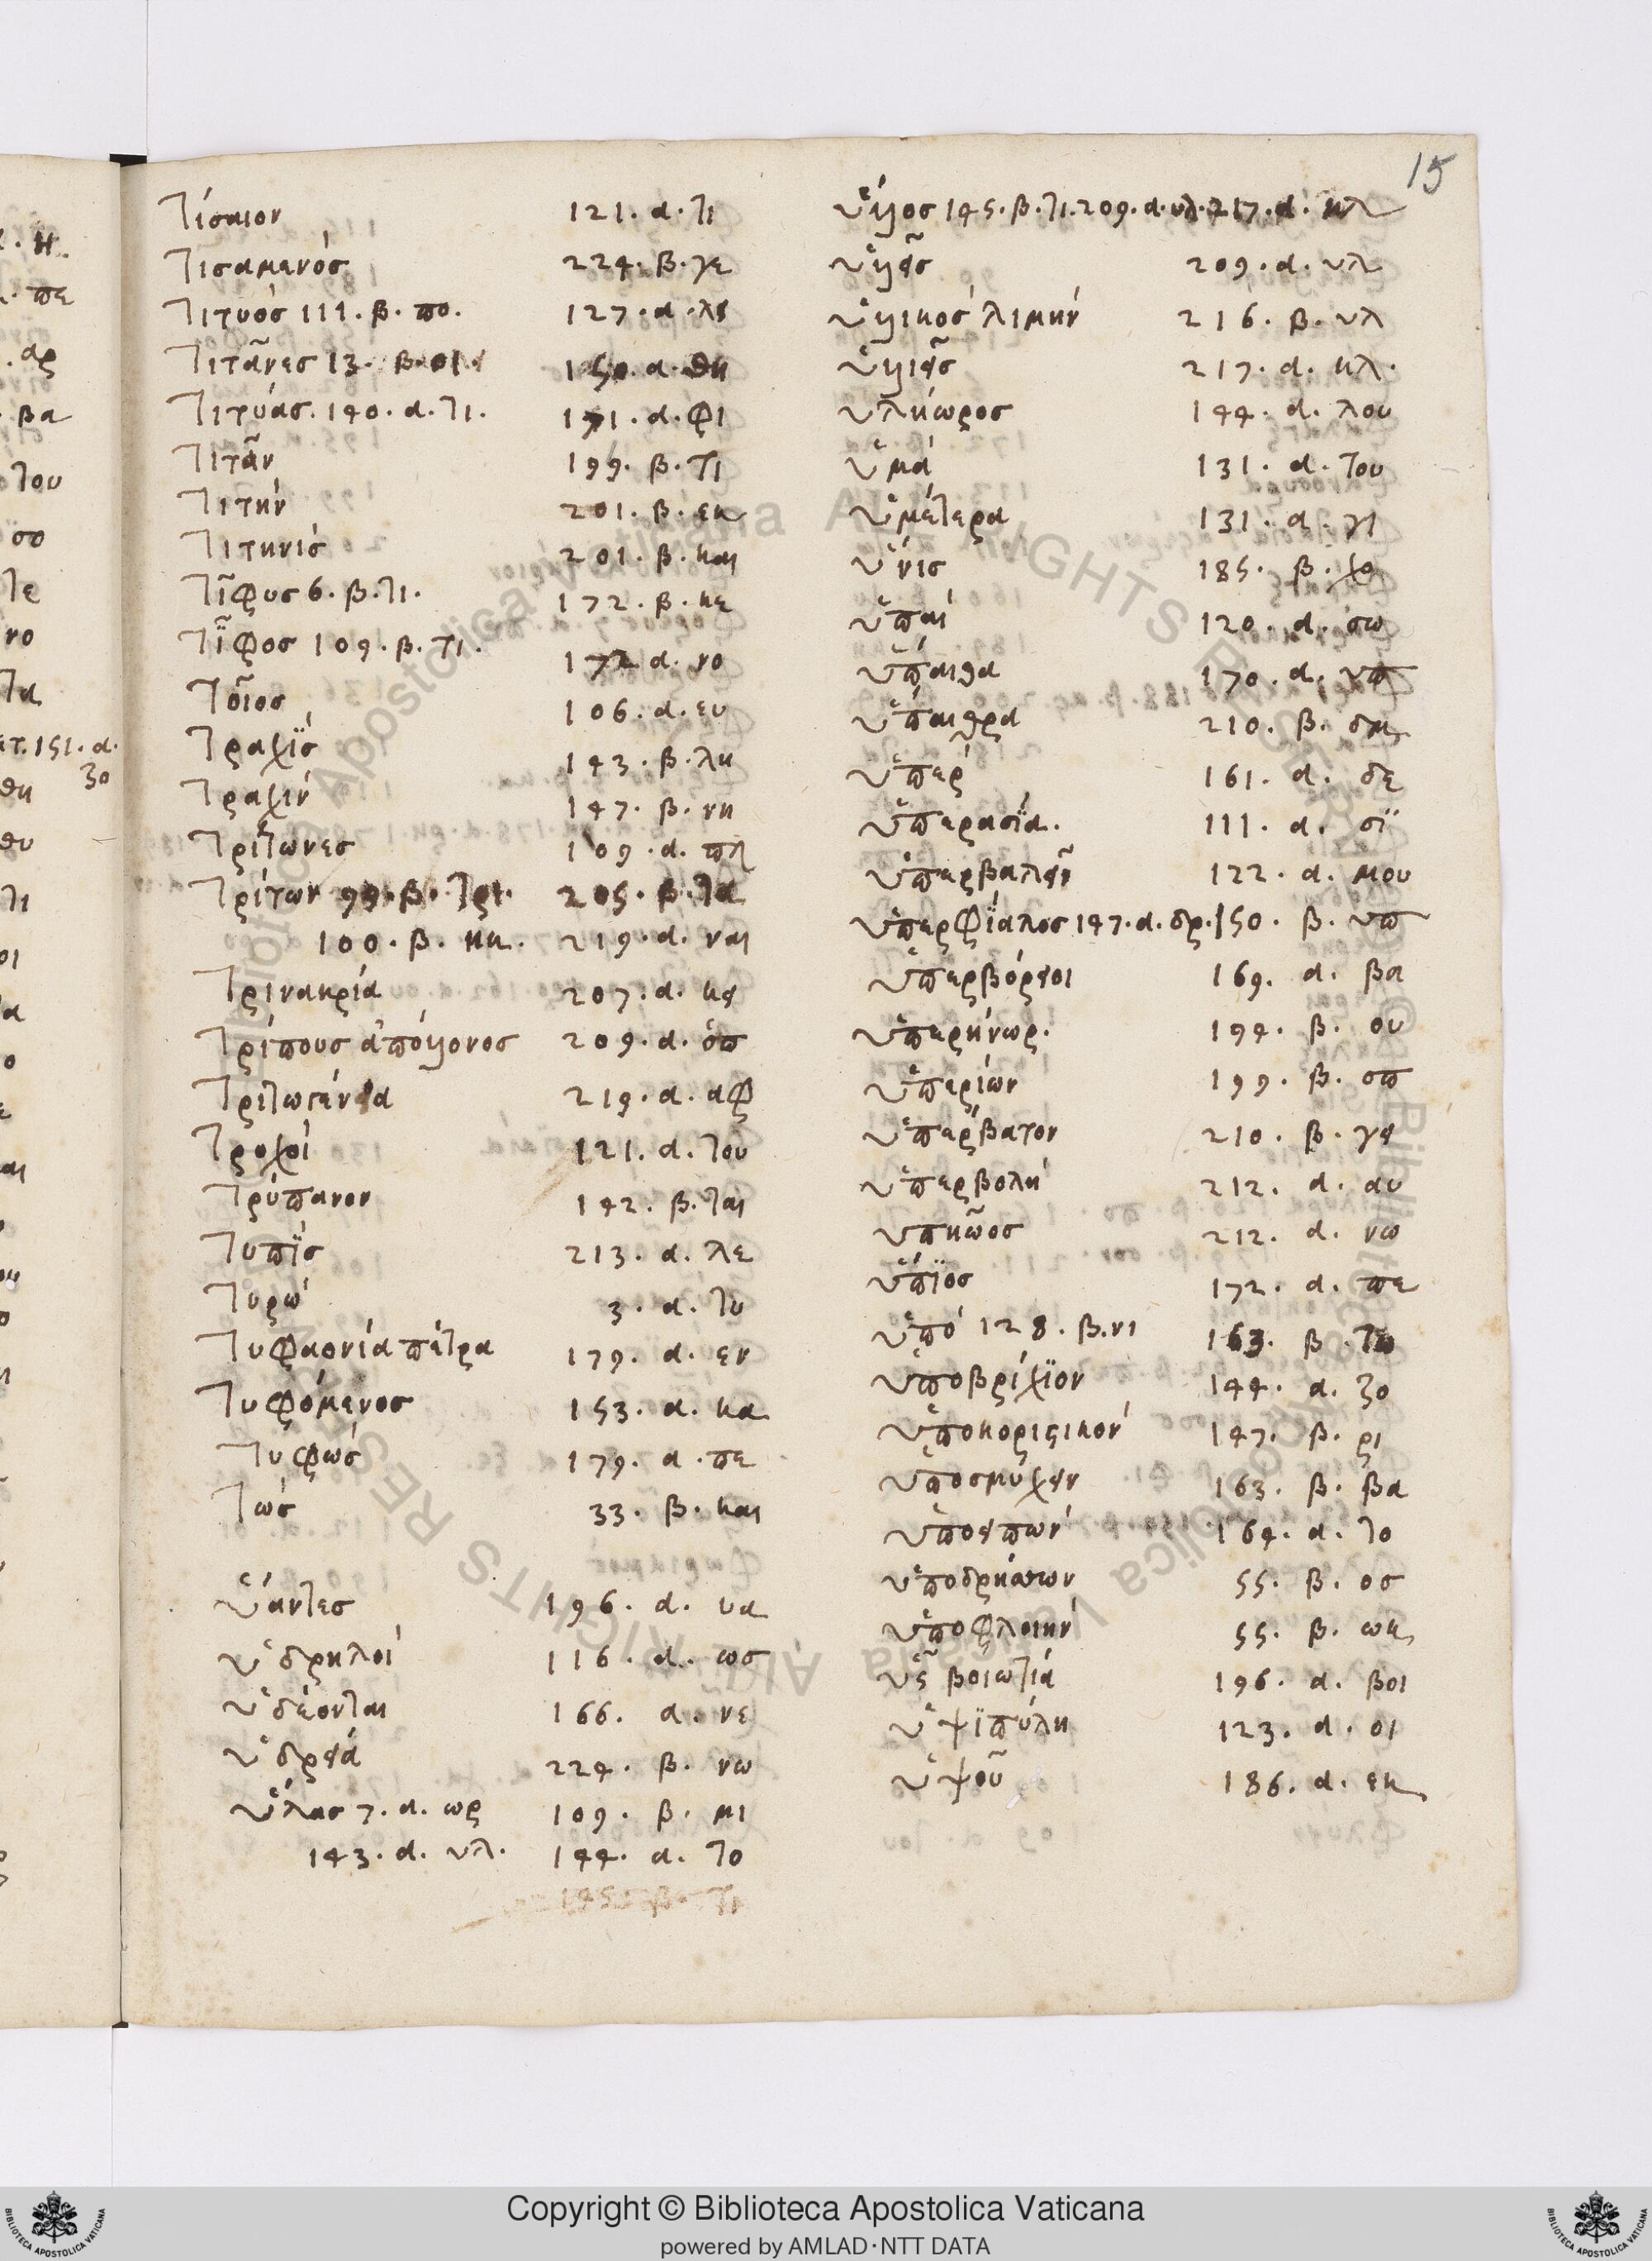 15
Τίσαιον 121. α. τι
Τισαμενός 224. β. γε
Τιτυός 111. β. πο. 127. α. λε
Τιτᾶνες 13. β. οι 150. α. θη
Τιτύας. 140. α. τι. 171. α. φι
Τιτᾶν 199. β. τι
Τιτήν 201. β. εκ
Τιτηνίς 201. β. και
Τῖφυς 6. β. τι. 172. β. κε
Τῖφος 109. β. τι. 172 α. νο
Τοῖος 106. α. ευ
Τραχϊς 143. β. λη
Τραχίν 147. β. νη
Τρίτωνες 109. α. πλ
Τρίτων 99. β. τρι. 205. β. τα
100. β. κη. 219. α. ναι
Τρινακρία 207. α. κε
Τρίπους ἀπόλλωνος 209. α. ὁπ
Τριτωγένεια 219. α. αφ
Τροχοί 121. α. του
τρύπανον 142. β. ται
Τυπϊς 213. α. λε
Τυρώ 3. α. τυ
Τυφαονία πέτρα 179. α. εν
Τυφόμενος 153. α. κα
Τυφώς 179. α. πε
Τώς 33. β. και
ὕαντες 196. α. υα
ὑδρηλοί 116. α. ως
ὑδέονται 166. α. νε
ὑδρεία 224. β. νω
ὕλας 7. α. ωρ 109. β. μι
143. α. υλ. 144. α. το
ὕλλος 145. β. τι. 209. α. υλ. 217. α. κλ
ὑλλεῖς 209. α. υλ
ὑλλικός λιμήν 216. β. υλ
ὑλλιεῖς 217. α. κλ.
υλήωρος 144. α. λου
ὑμά 131. α. του
ὑμέτερα 131. α. γι
ὕνις 185. β. χο
ὑπαί 120. α. σω
ὕπαιθα 170. α. υπ
ὕπαιθρα 210. β. σμ
ὑπερ 161. α. δε
ὑπερασϊα. 111. α. σϊ
ὑπερβαλεῖν 122. α. μου
ὑπερφϊαλος 147. α. δρ. 150. β. υπ
ὑπερβόρειοι 169. α. βα
ὑπερήνωρ. 194. β. ου
ὑπερίων 199. β. σπ
ὑπερβατον 210. β. γε
ὑπερβολή 212. α. αυ
υπηῶος 212. α. νω
ὕπϊος 172. α. πε
ὑπό 128. β. νι 163. β. το
ὑποβρίχϊον 144. α. ζο
ὑποκοριστικόν 147. β. ρι
ὑποσμύχειν 163. β. βα
ὑποειπών 164. α. το
ὑποδρήσσων 55. β. ος
ὑποφλοίην 55. β. ωκ
ὗς βοιωτία 196. α. βοι
ὑψϊπύλη 123. α. οι
ὑψοῦ 186. α. εκ
Copyright © Biblioteca Apostolica Vaticana
powered by AMLAD·NTT DATA